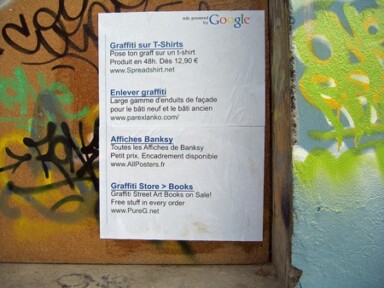 Ads powered
by Google
Graffiti sur T-Shirts
Pose ton graff sur un t-shirt
Produit en 48h. Dès 12,90 €
www.Spreadshirt.net
Enlever graffiti
Large gamme d'enduits de façade
pour le bâti neuf et le bâti ancien
www.parexlanko.com/
Affiches Banksy
Toutes les Affiches de Banksy
Petit prix. Encadrement disponible
www.AllPosters.fr
Graffiti Store > Books
Graffiti Street Art Books on Sale!
Free stuff in every order
www.PureG.net